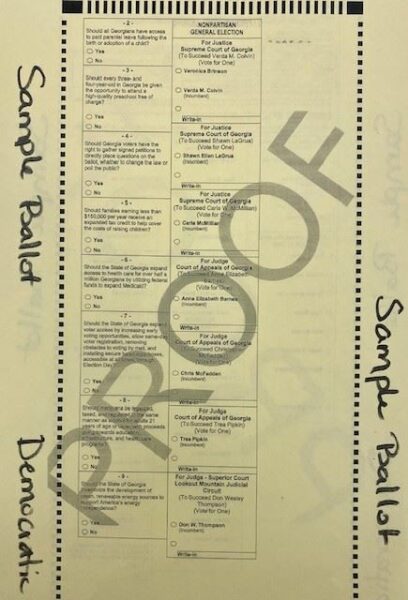 Sample Ballot
Democratic
- 2 -
Should all Georgians have access
to paid parental leave following the
birth or adoption of a child?
Yes
No
- 3 -
Should every three- and
four-year-old in Georgia be given
the opportunity to attend a
high-quality preschool free of
charge?
Yes
No
- 4 -
Should Georgia voters have the
right to gather signed petitions to
directly place questions on the
ballot, whether to change the law or
poll the public?
Yes
No
- 5 -
Should families earning less than
$150,000 per year receive an
expanded tax credit to help cover
the costs of raising children?
Yes
No
- 6 -
Should the State of Georgia expand
access to health care for over half a
million Georgians by utilizing federal
funds to expand Medicaid?
Yes
No
- 7 -
Should the State of Georgia expand
voter access by increasing early
voting opportunities, allow same-day
voter registration, removing
obstacles to voting by mail, and
installing secure
accessible at all
Election Day
Yes
No
- 8 -
Should marijuana be legalized,
taxed, and regulated in the same
manner as alcohol for adults 21
years of age or
infrastructure, and health care
programs?
Yes
No
- 9 -
Should the State of Georgia
clean, renewable energy sources to
support America's energy
independence?
Yes
No
NONPARTISAN
GENERAL ELECTION
For Justice
Supreme Court of Georgia
(To Succeed Verda M. Colvin)
(Vote for One)
Veronica Brinson
Verda M. Colvin
(Incumbent)
Write-in
For Justice
Supreme Court of Georgia
(To Succeed Shawn LaGrua)
(Vote for One)
Shawn Ellen LaGrua
(Incumbent)
Write-in
For Justice
Supreme Court of Georgia
(To Succeed Carla W. McMillian)
(Vote for One)
Carla McMillian
(Incumbent)
Write-in
For Judge
Court of Appeals of Georgia
(To Succeed Anne Elizabeth
Barnes)
(Vote for One)
Anne Elizabeth Barnes
(Incumbent)
Write-in
For Judge
Court of Appeals of Georgia
(To Succeed Christopher
McFadden)
(Vote for One)
Chris McFadden
(Incumbent)
Write-in
For Judge
Court of Appeals of Georgia
(To Succeed Trea Pipkin)
(Vote for One)
Trea Pipkin
(Incumbent)
Write-in
For Judge - Superior Court
Lookout Mountain Judicial
Circuit
(To Succeed Don Wesley
Thompson)
(Vote for One)
Don W. Thompson
(Incumbent)
Write-in
PROOF
Sample Ballot